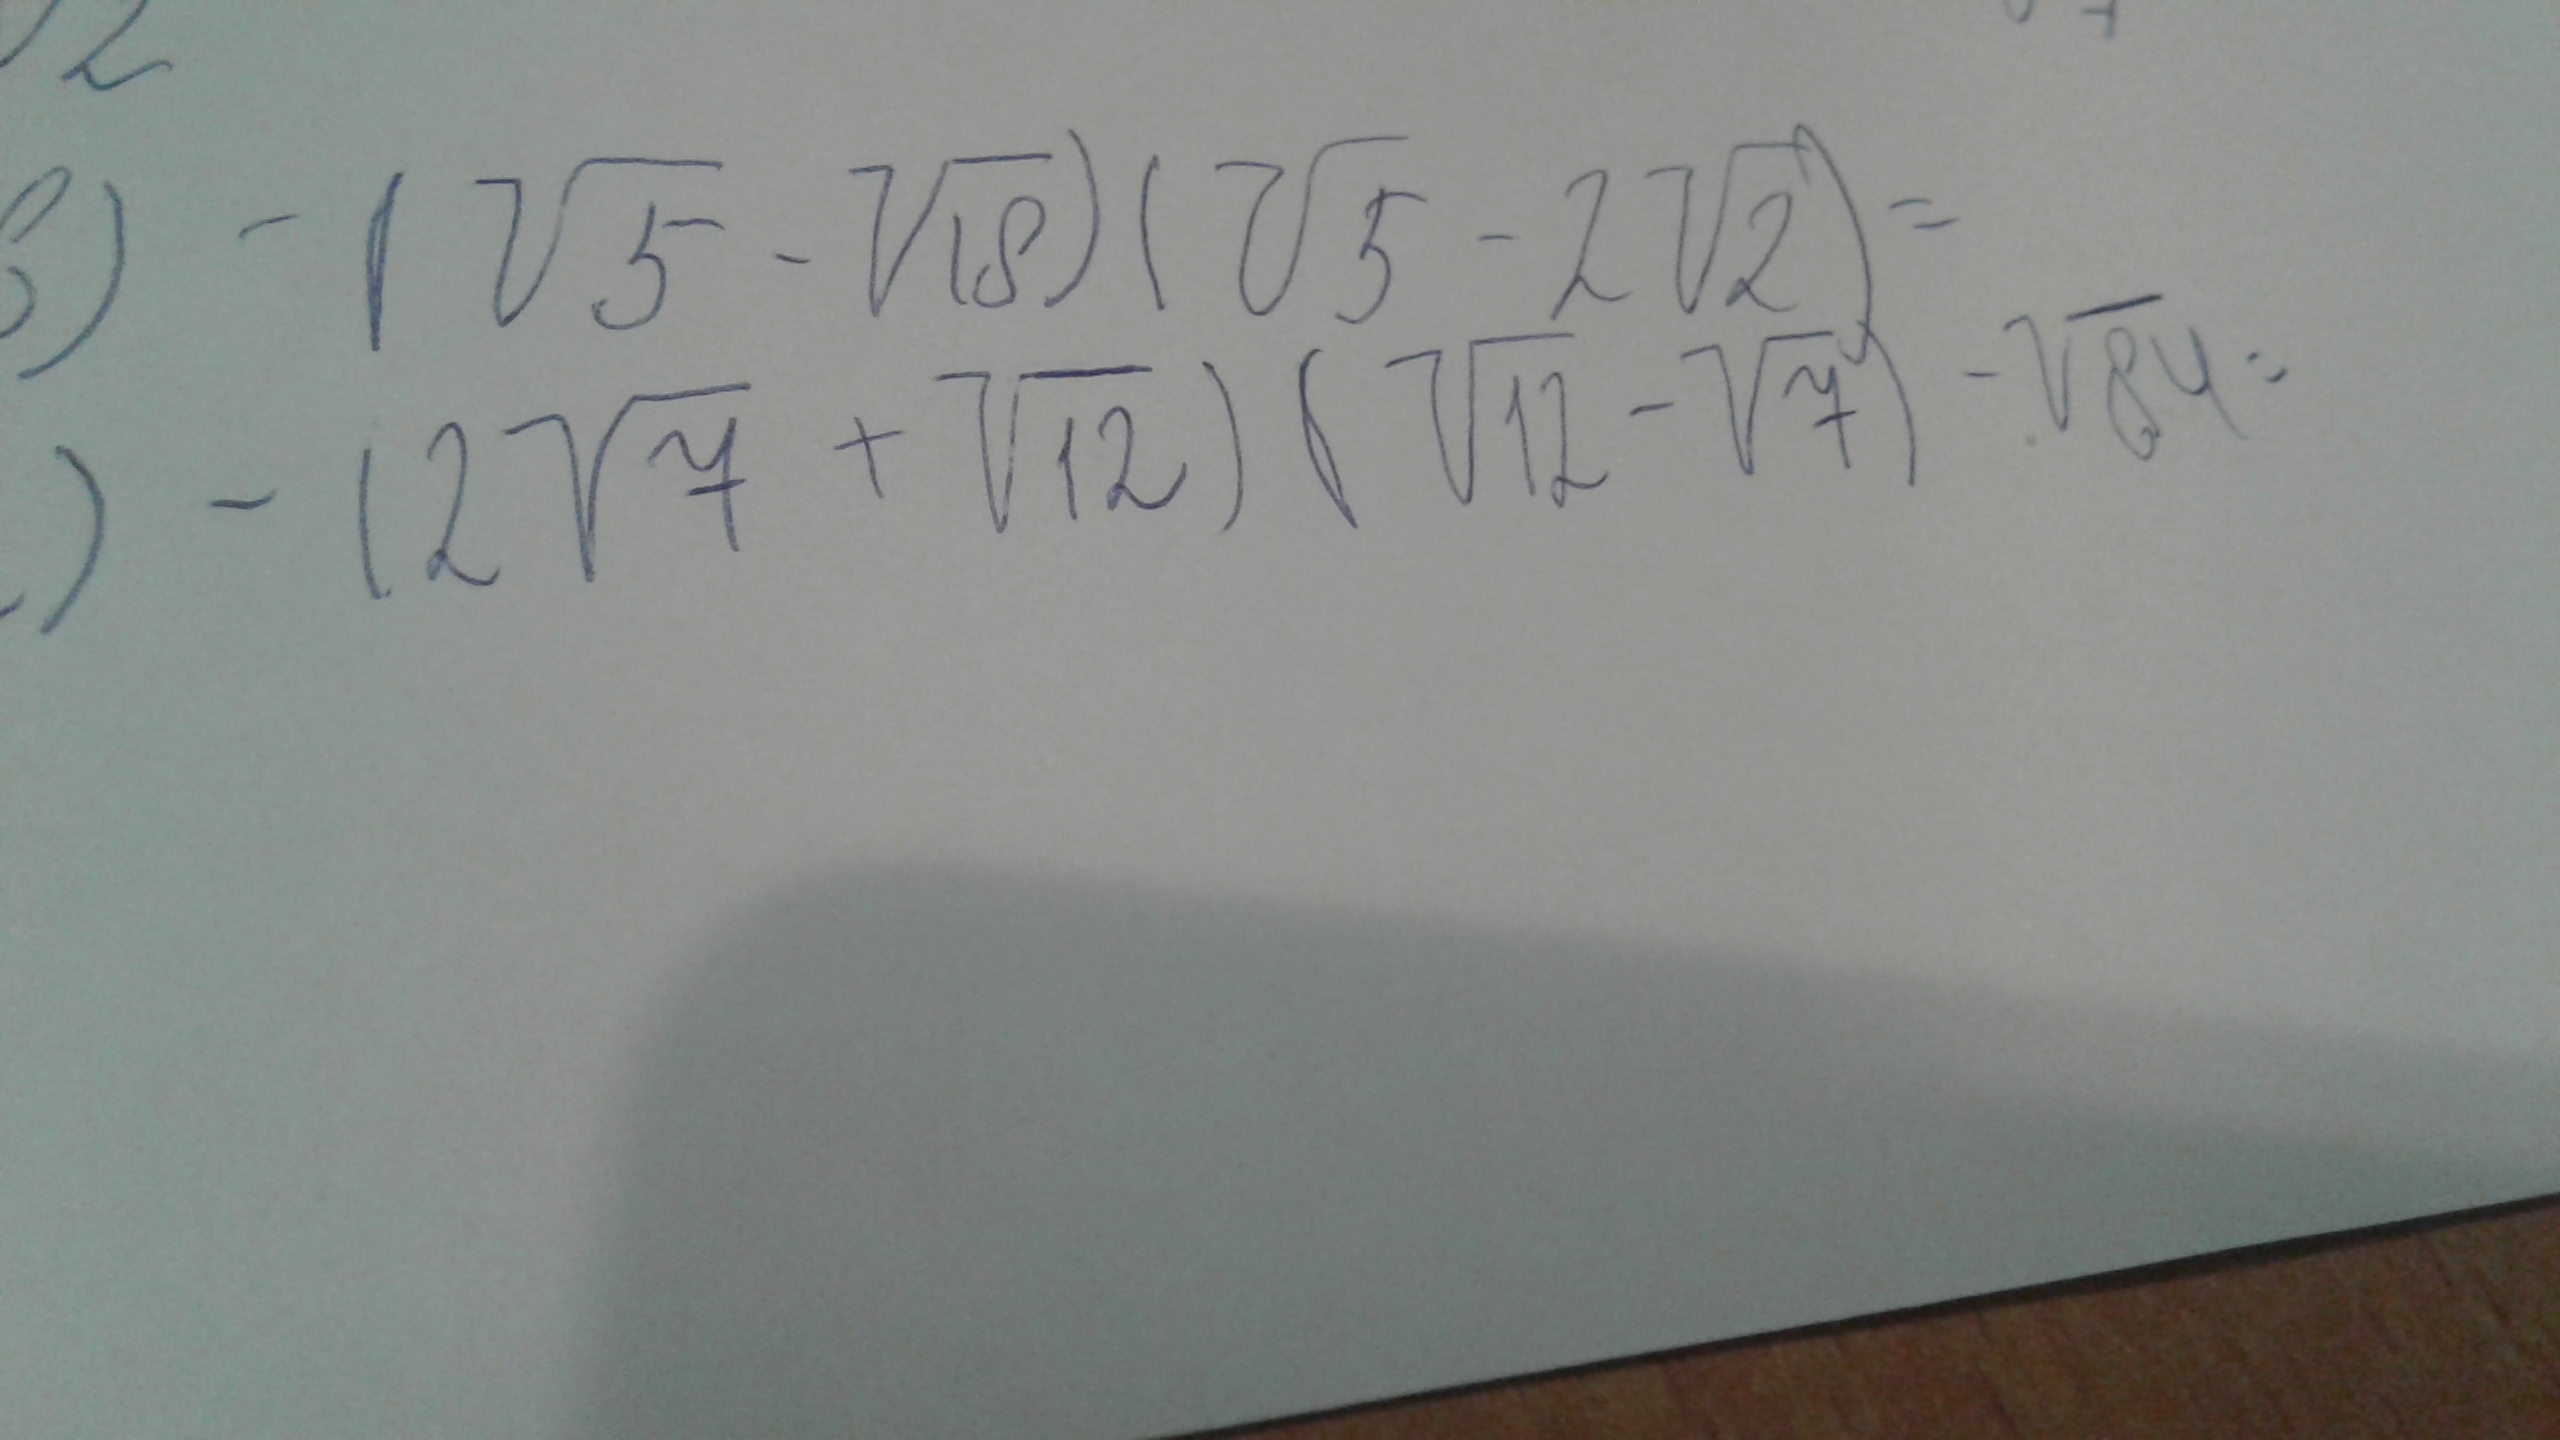 √2
в) - (√5 - √18)(√5 - 2√2) =
) - (2√7 + √12)(√12 - √7) - √84 =